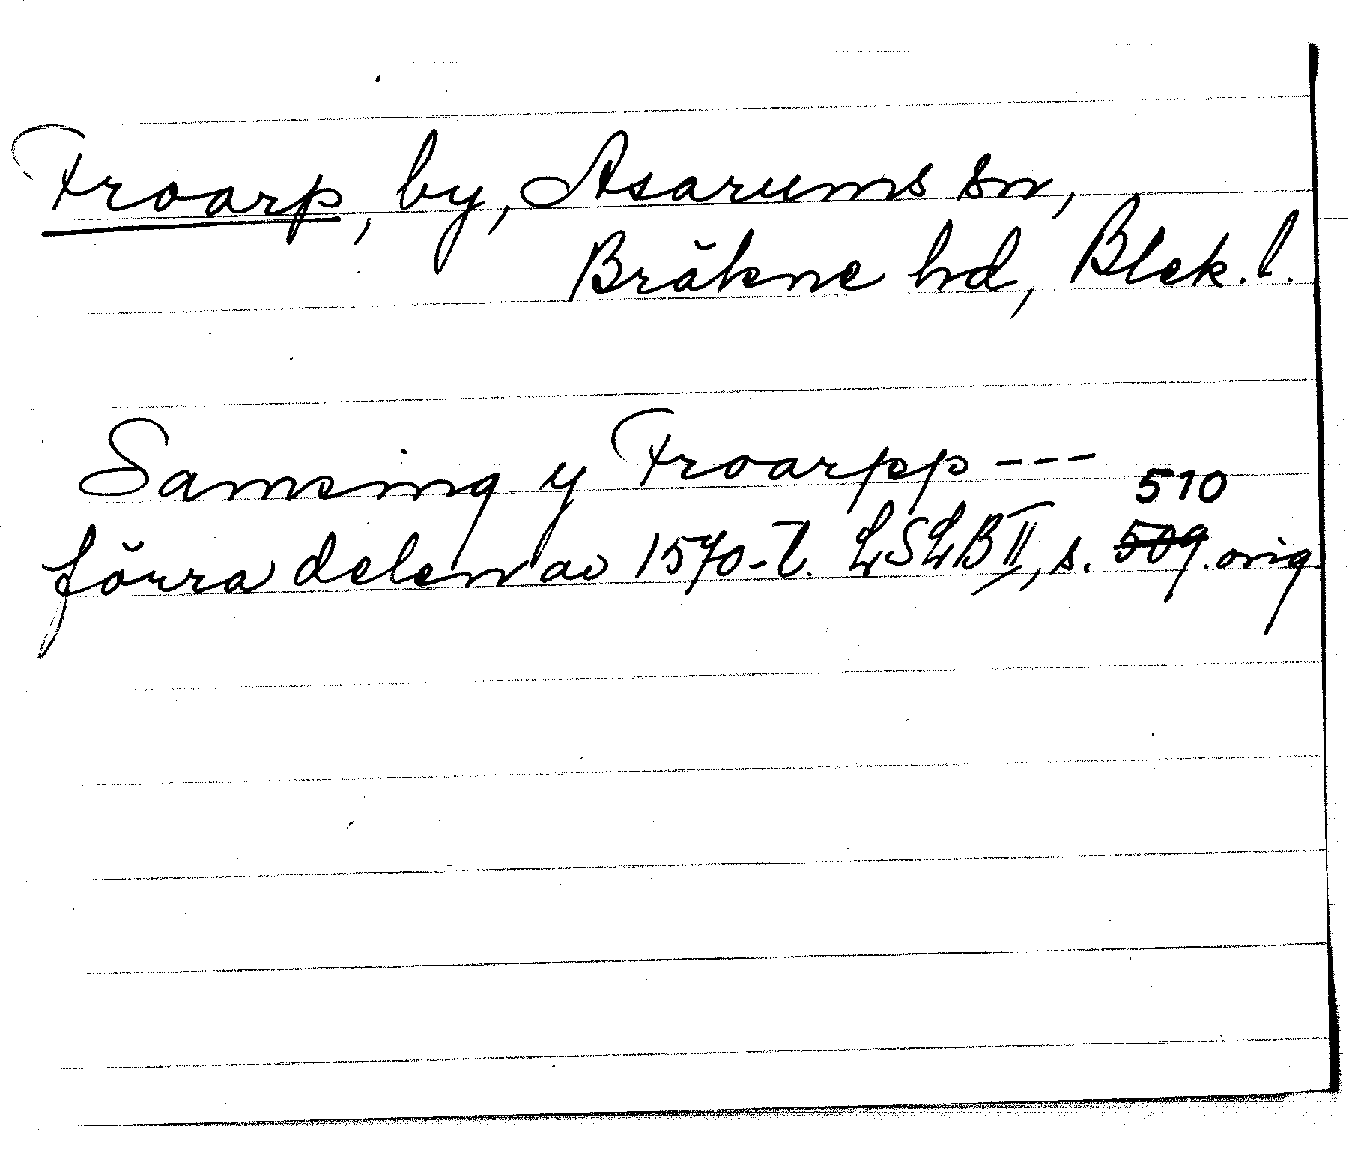 Froarp, by, Asarums sn,
Bräkne hd, Blek. l.
Samsing y Froarpp ---
510
förra delen av 1570-t. LSLB II, s. 509. orig